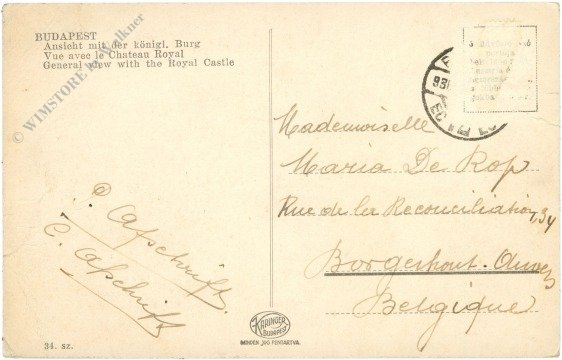 BUDAPEST
Ansicht mit der königl. Burg
Vue avec le Chateau Royal
General view with the Royal Castle
© WIMSTORE K. Walkner
Mademoiselle
Maria De Kop
Rue de la Reconciliation, 34
Borgerhout-Anvers
Belgique
C. Afschrift.
C. Afschrift
KARINGER
BUDAPEST
MINDEN JOG FENTARTVA.
34. sz.